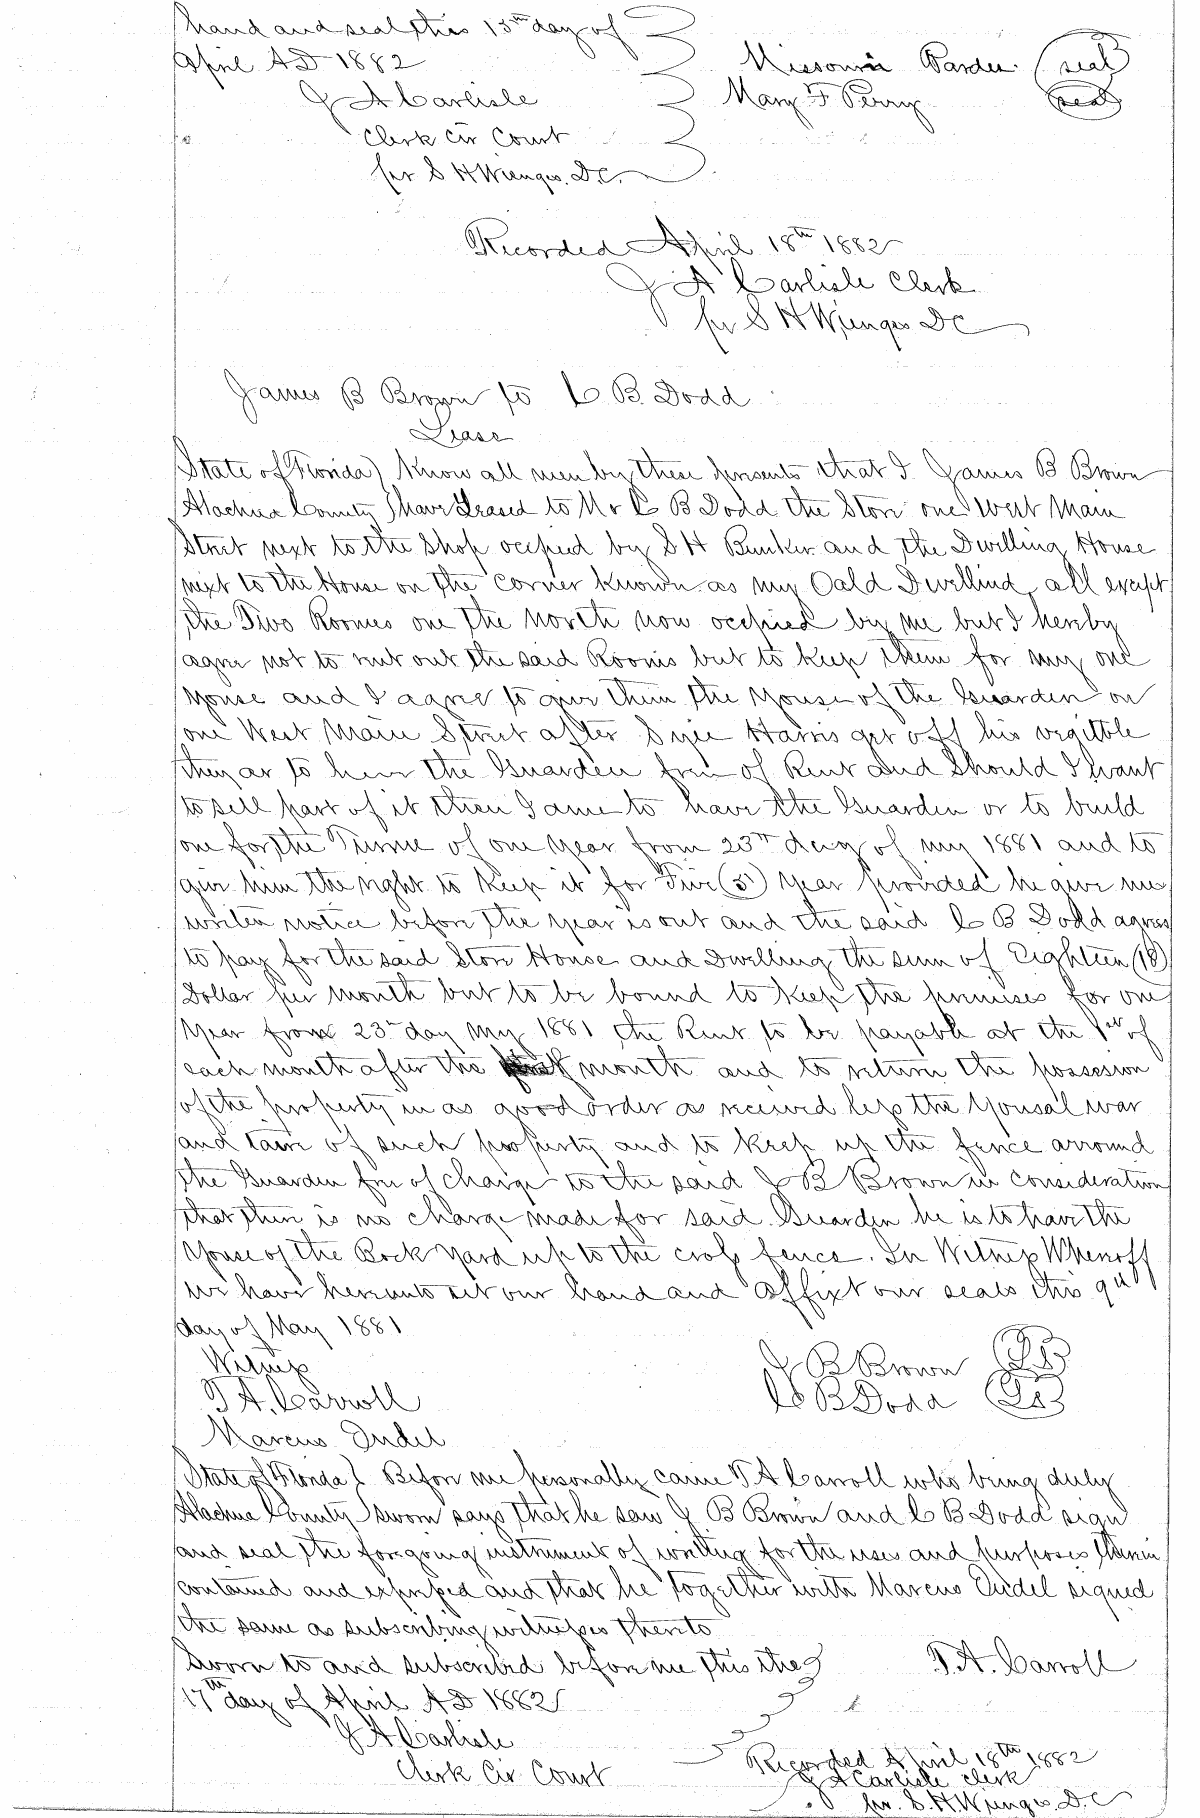 hand and seal this 15th day of
April AD 1882
J A Carlisle
Clerk Cir Court
per S H Wienges. D.C.
Missouri Pardee. (seal)
Mary F Perry (seal)
Recorded April 18th 1882
J A Carlisle Clerk
per S H Wienges DC
James B Brown to C B. Dodd
Lease
State of Florida) Know all men by these presents that I James B Brown
Alachua County )have Leased to Mr C B Dodd the Store one West Main
Street next to the Shop occpied by S H Bunker and the Dwelling House
next to the House on the Corner known as my Oald Dwellind all except
the Two Roomes one the north now occpied by me but I hereby
agree not to rent out the said Rooms but to keep them for my one
youse and I agree to give them the youse of the Guarden on
one West Main Street after Harris get off his vegitble
they ar to have the Guarden free of Rent and Should I want
to sell part of it then I ame to have the Guarden or to build
one for the Timme of one year from 23rd day of my 1881 and to
give him the right to keep it for Five (5) year provided he give me
writen notice before the year is out and the said C B Dodd agrees
to pay for the said Store House and Dwelling the sum of Eighteen (18)
Dollar per month but to be bound to keep the premises for one
year from 23rd day my 1881 the Rent to be payable at the 1st of
each month after the first month and to return the possession
of the property in as good order as received less the yousal war
and taire of such property and to keep up the fence arround
the Guarden free of charge to the said J B Brown in consideration
that there is no charge made for said Guarden he is to have the
youse of the Back yard up to the cross fence. In Witness Whenoff
we have hereunto set our hand and affixt our seals this 9th
day of May 1881
Witness
T A. Carroll
Marcus Endel
J B Brown (LS)
C B Dodd (LS)
State of Florida } Before me personally came T A Carroll who being duly
Alachua County sworn says that he saw J B Brown and C B Dodd sign
and seal the foregoing instrument of writing for the uses and purposes therein
contained and expressed and that he together with Marcus Endel signed
the same as subscribing witnesses thereto
Sworn to and subscribed before me this the
17th day of April AD 1882
J A Carlisle
Clerk Cir Court
T. A. Carroll
Recorded April 18th 1882
J A Carlisle clerk
per. S. H. Wienges D.C